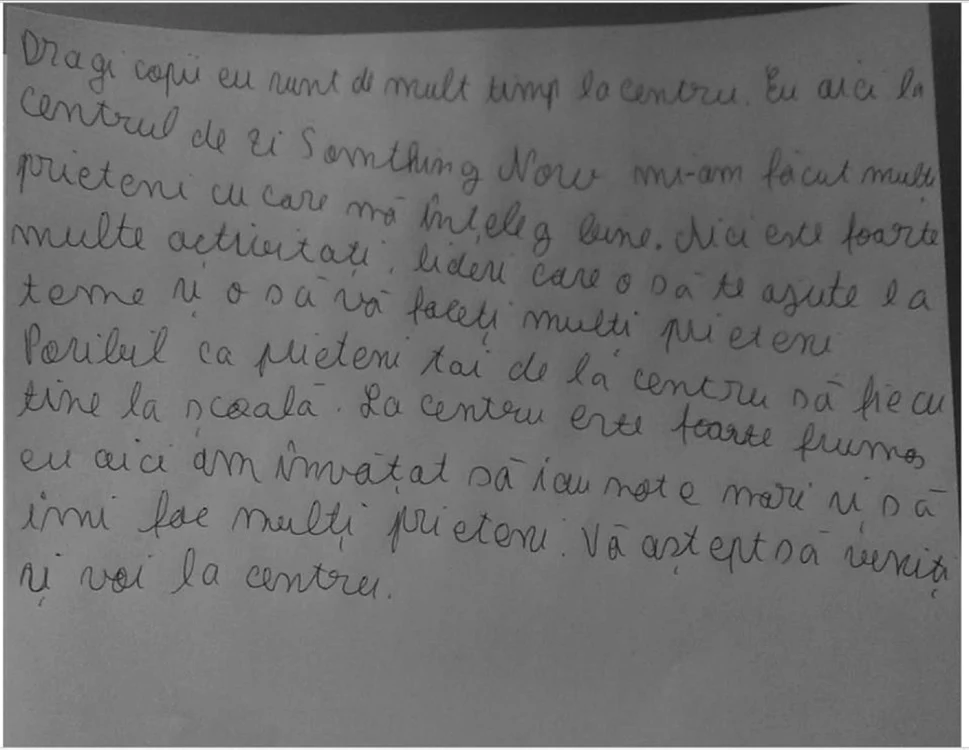 Dragi copii eu sunt de mult timp la centru. Eu aici la
centrul de zi Somthing Now mi-am făcut mulți
prieteni cu care mă înțeleg bine. Aici este foarte
multe activitați, lideri care o să te ajute la
teme și o să vă faceți mulți prieteni
Posibil ca prieteni tai de la centru să fie cu
tine la școală. La centru este foarte frumos
eu aici am învățat să iau note mari și să
îmi fac mulți prieteni. Vă aștept să veniți
și voi la centru.